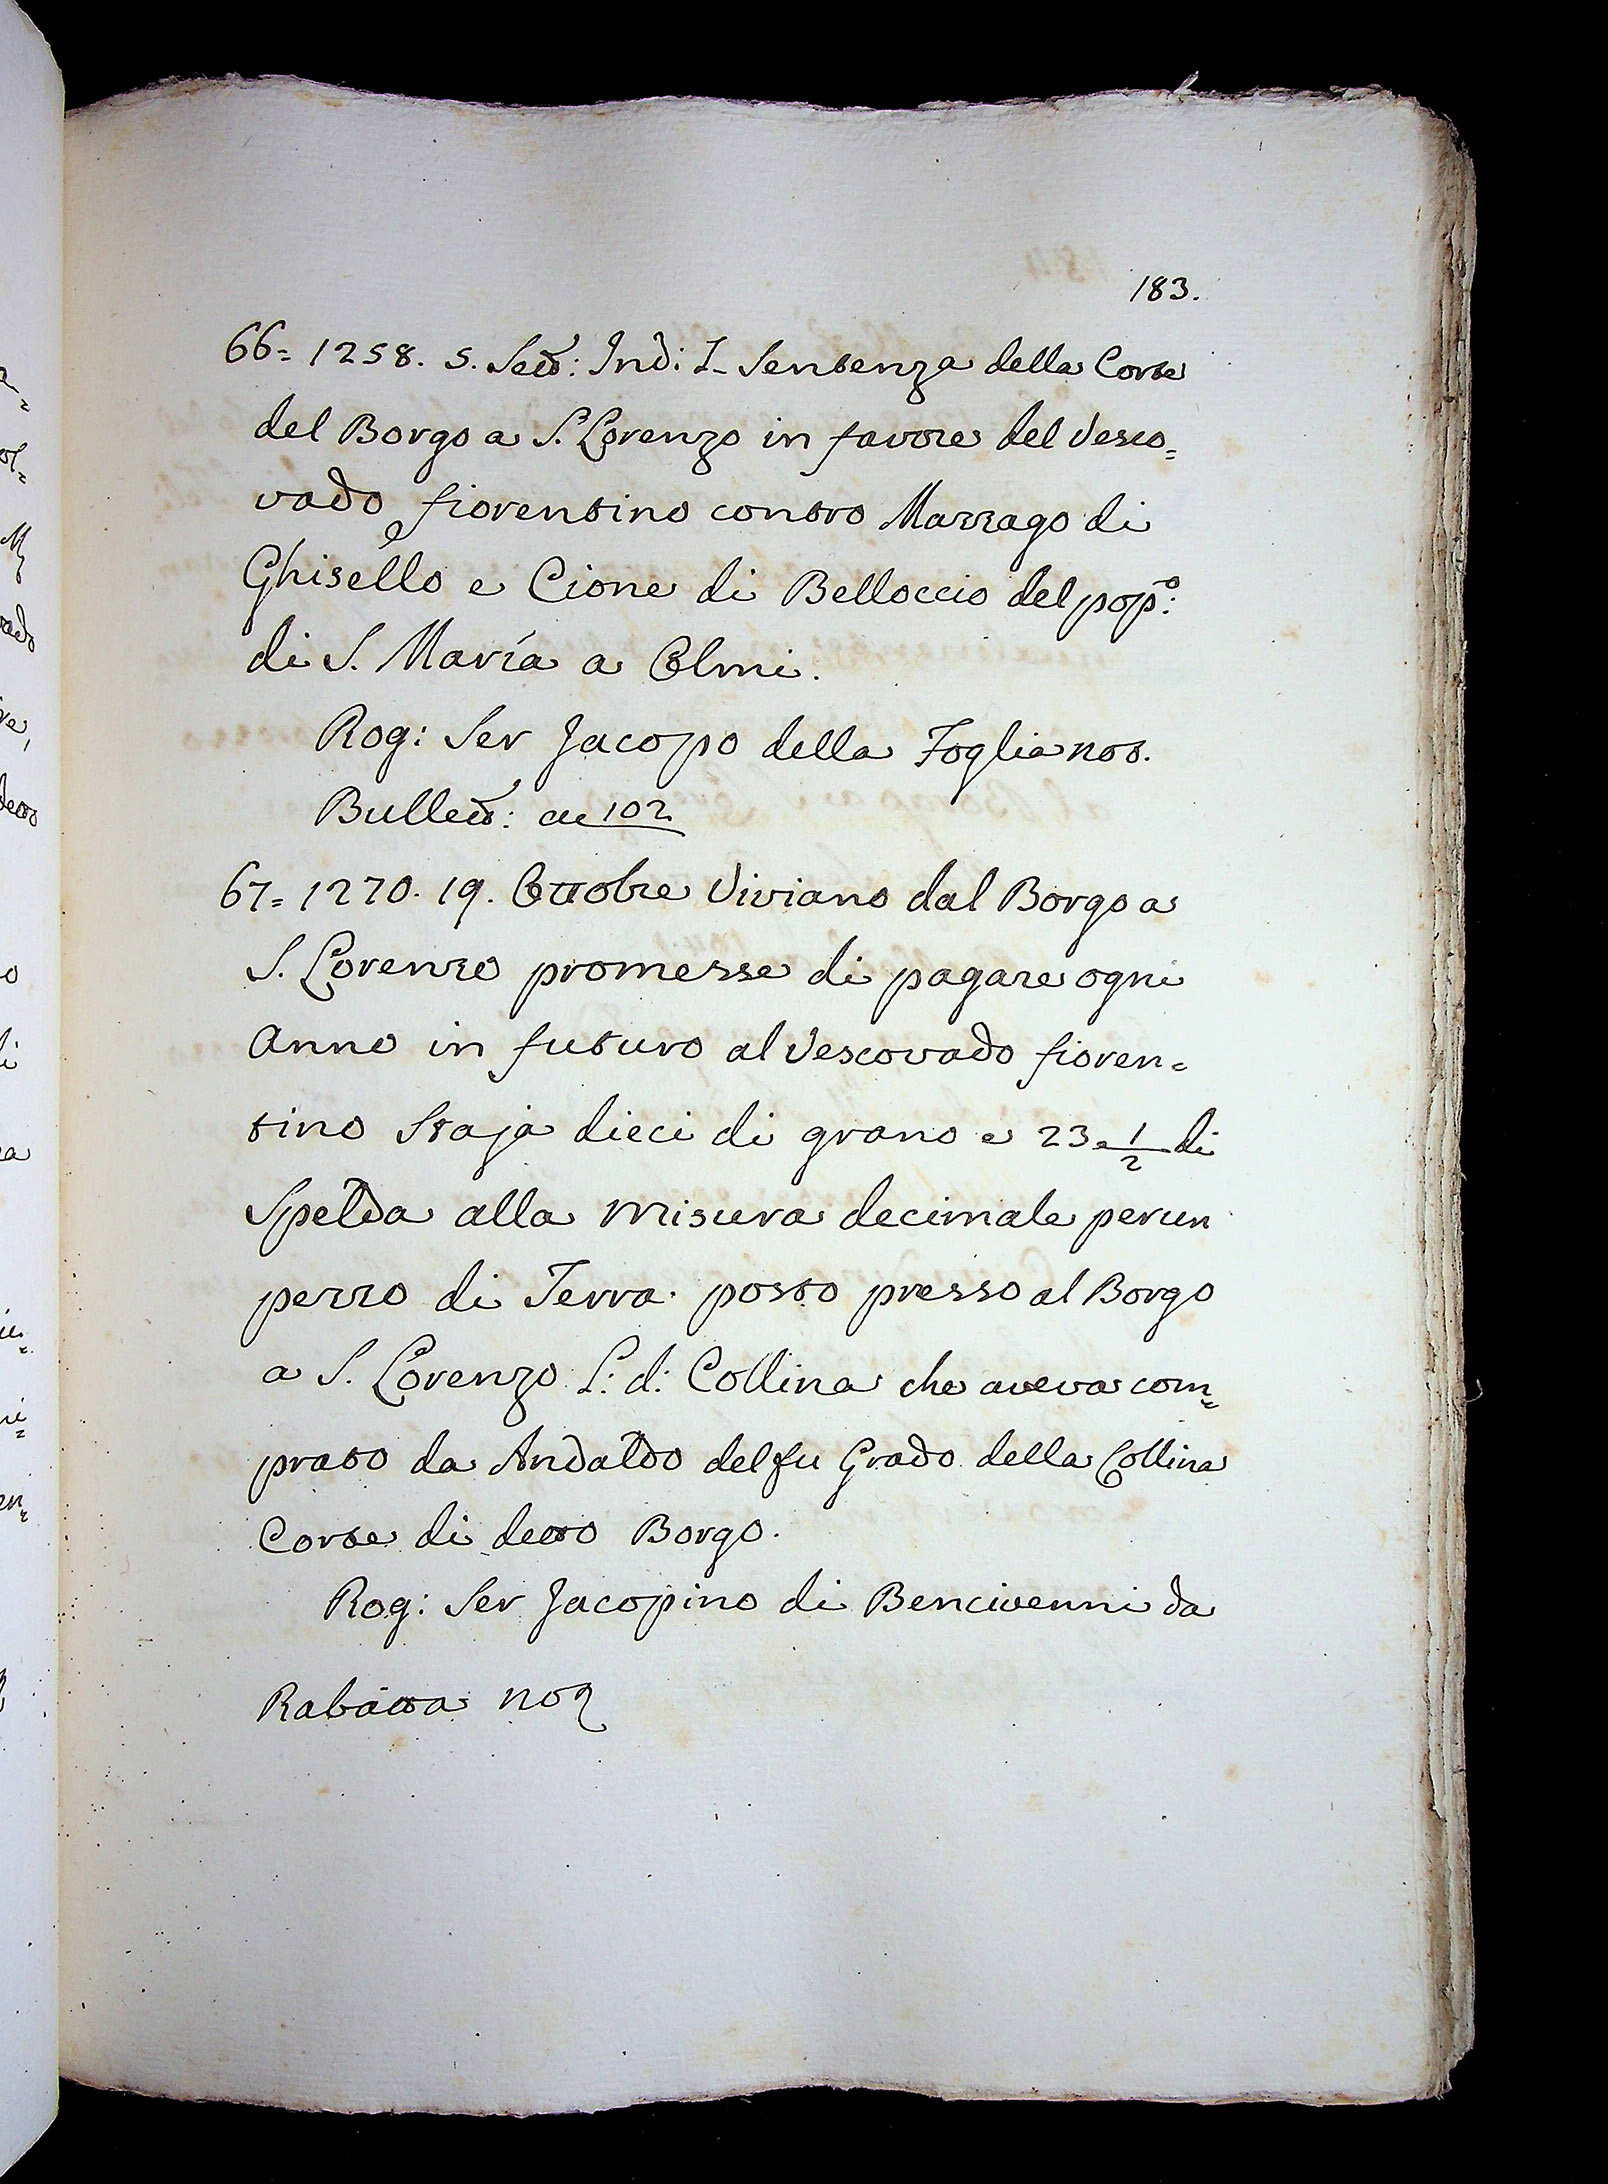 183.
66= 1258. 5. Sett: Ind: I- Sentenza della Corte
del Borgo a S. Lorenzo in favore del Vesco=
vado fiorentino contro Mazzago di
Ghisello e Cione di Belloccio del pop.º:
di S. María a Olmi.
Rog: Ser Jacopo della Foglia not.
Bullett: a 102
67= 1270. 19. Ottobre Viviano dal Borgo a
S. Lorenzo promesse di pagare ogni
Anno in futuro al Vescovado fioren=
tino Staja dieci di grano e 23 e 1/2 di
Spelda alla misura decimale per un
pezzo di Terra posto presso al Borgo
a S. Lorenzo L: d: Collina che aveva com=
prato da Andaldo del fu Grado della Collina
Corte di detto Borgo.
Rog: Ser Jacopino di Bencivenni da
Rabatta not